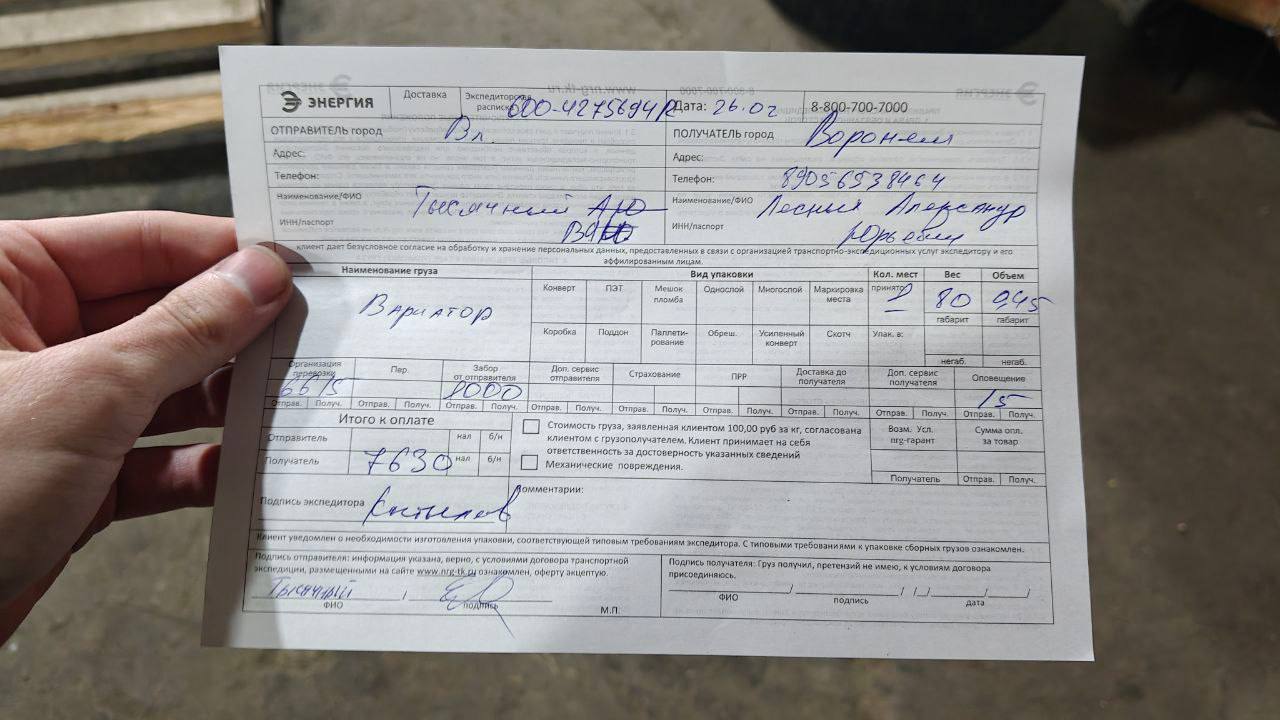 ЭНЕРГИЯ
Доставка
Экспедиторская расписка 600-4275694R
Дата: 26.02
8-800-700-7000
ОТПРАВИТЕЛЬ город Вл.
ПОЛУЧАТЕЛЬ город Воронеж
Адрес:
Адрес:
Телефон:
Телефон: 89056538464
Наименование/ФИО Тысячный
Наименование/ФИО Лесных Александр
ИНН/паспорт
ИНН/паспорт Юрьевич
клиент дает безусловное согласие на обработку и хранение персональных данных, предоставленных в связи с организацией транспортно-экспедиционных услуг экспедитору и его
аффилированным лицам.
Наименование груза
Вид упаковки
Кол. мест
Вес
Объем
Вариатор
Конверт
ПЭТ
Мешок пломба
Однослой
Многослой
Маркировка места
принято 1
80
0,45
габарит
габарит
Коробка
Поддон
Паллети-рование
Обреш.
Усиленный конверт
Скотч
Упак. в:
негаб.
негаб.
Организация перевозки
Пер.
Забор от отправителя
Доп. сервис отправителя
Страхование
ПРР
Доставка до получателя
Доп. сервис получателя
Оповещение
6615
1000
15
Отправ. Получ. Отправ. Получ. Отправ. Получ. Отправ. Получ. Отправ. Получ. Отправ. Получ. Отправ. Получ. Отправ. Получ. Отправ. Получ.
Итого к оплате
Отправитель нал б/н
Получатель 7630 нал б/н
Стоимость груза, заявленная клиентом 100,00 руб за кг, согласована
клиентом с грузополучателем. Клиент принимает на себя
ответственность за достоверность указанных сведений
Механические повреждения.
Возм. Усл. nrg-гарант
Сумма опл. за товар
Получатель
Отправ. Получ.
Подпись экспедитора
Комментарии:
Клиент уведомлен о необходимости изготовления упаковки, соответствующей типовым требованиям экспедитора. С типовыми требованиями к упаковке сборных грузов ознакомлен.
Подпись отправителя: информация указана, верно, с условиями договора транспортной
экспедиции, размещенными на сайте www.nrg-tk.ru ознакомлен, оферту акцептую.
Тысячный
ФИО
подпись
М.П.
Подпись получателя: Груз получил, претензий не имею, к условиям договора
присоединяюсь.
ФИО
подпись
дата